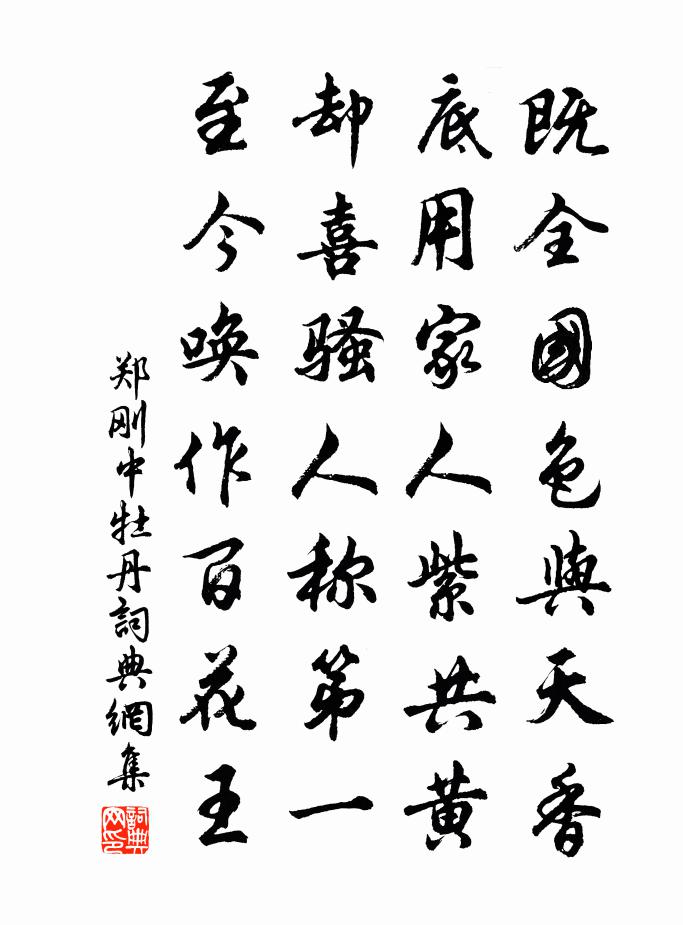 既全國色與天香
底用家人紫共黄
却喜騷人称第一
至今唤作百花王
郑刚中牡丹詞典網集
詞典网印